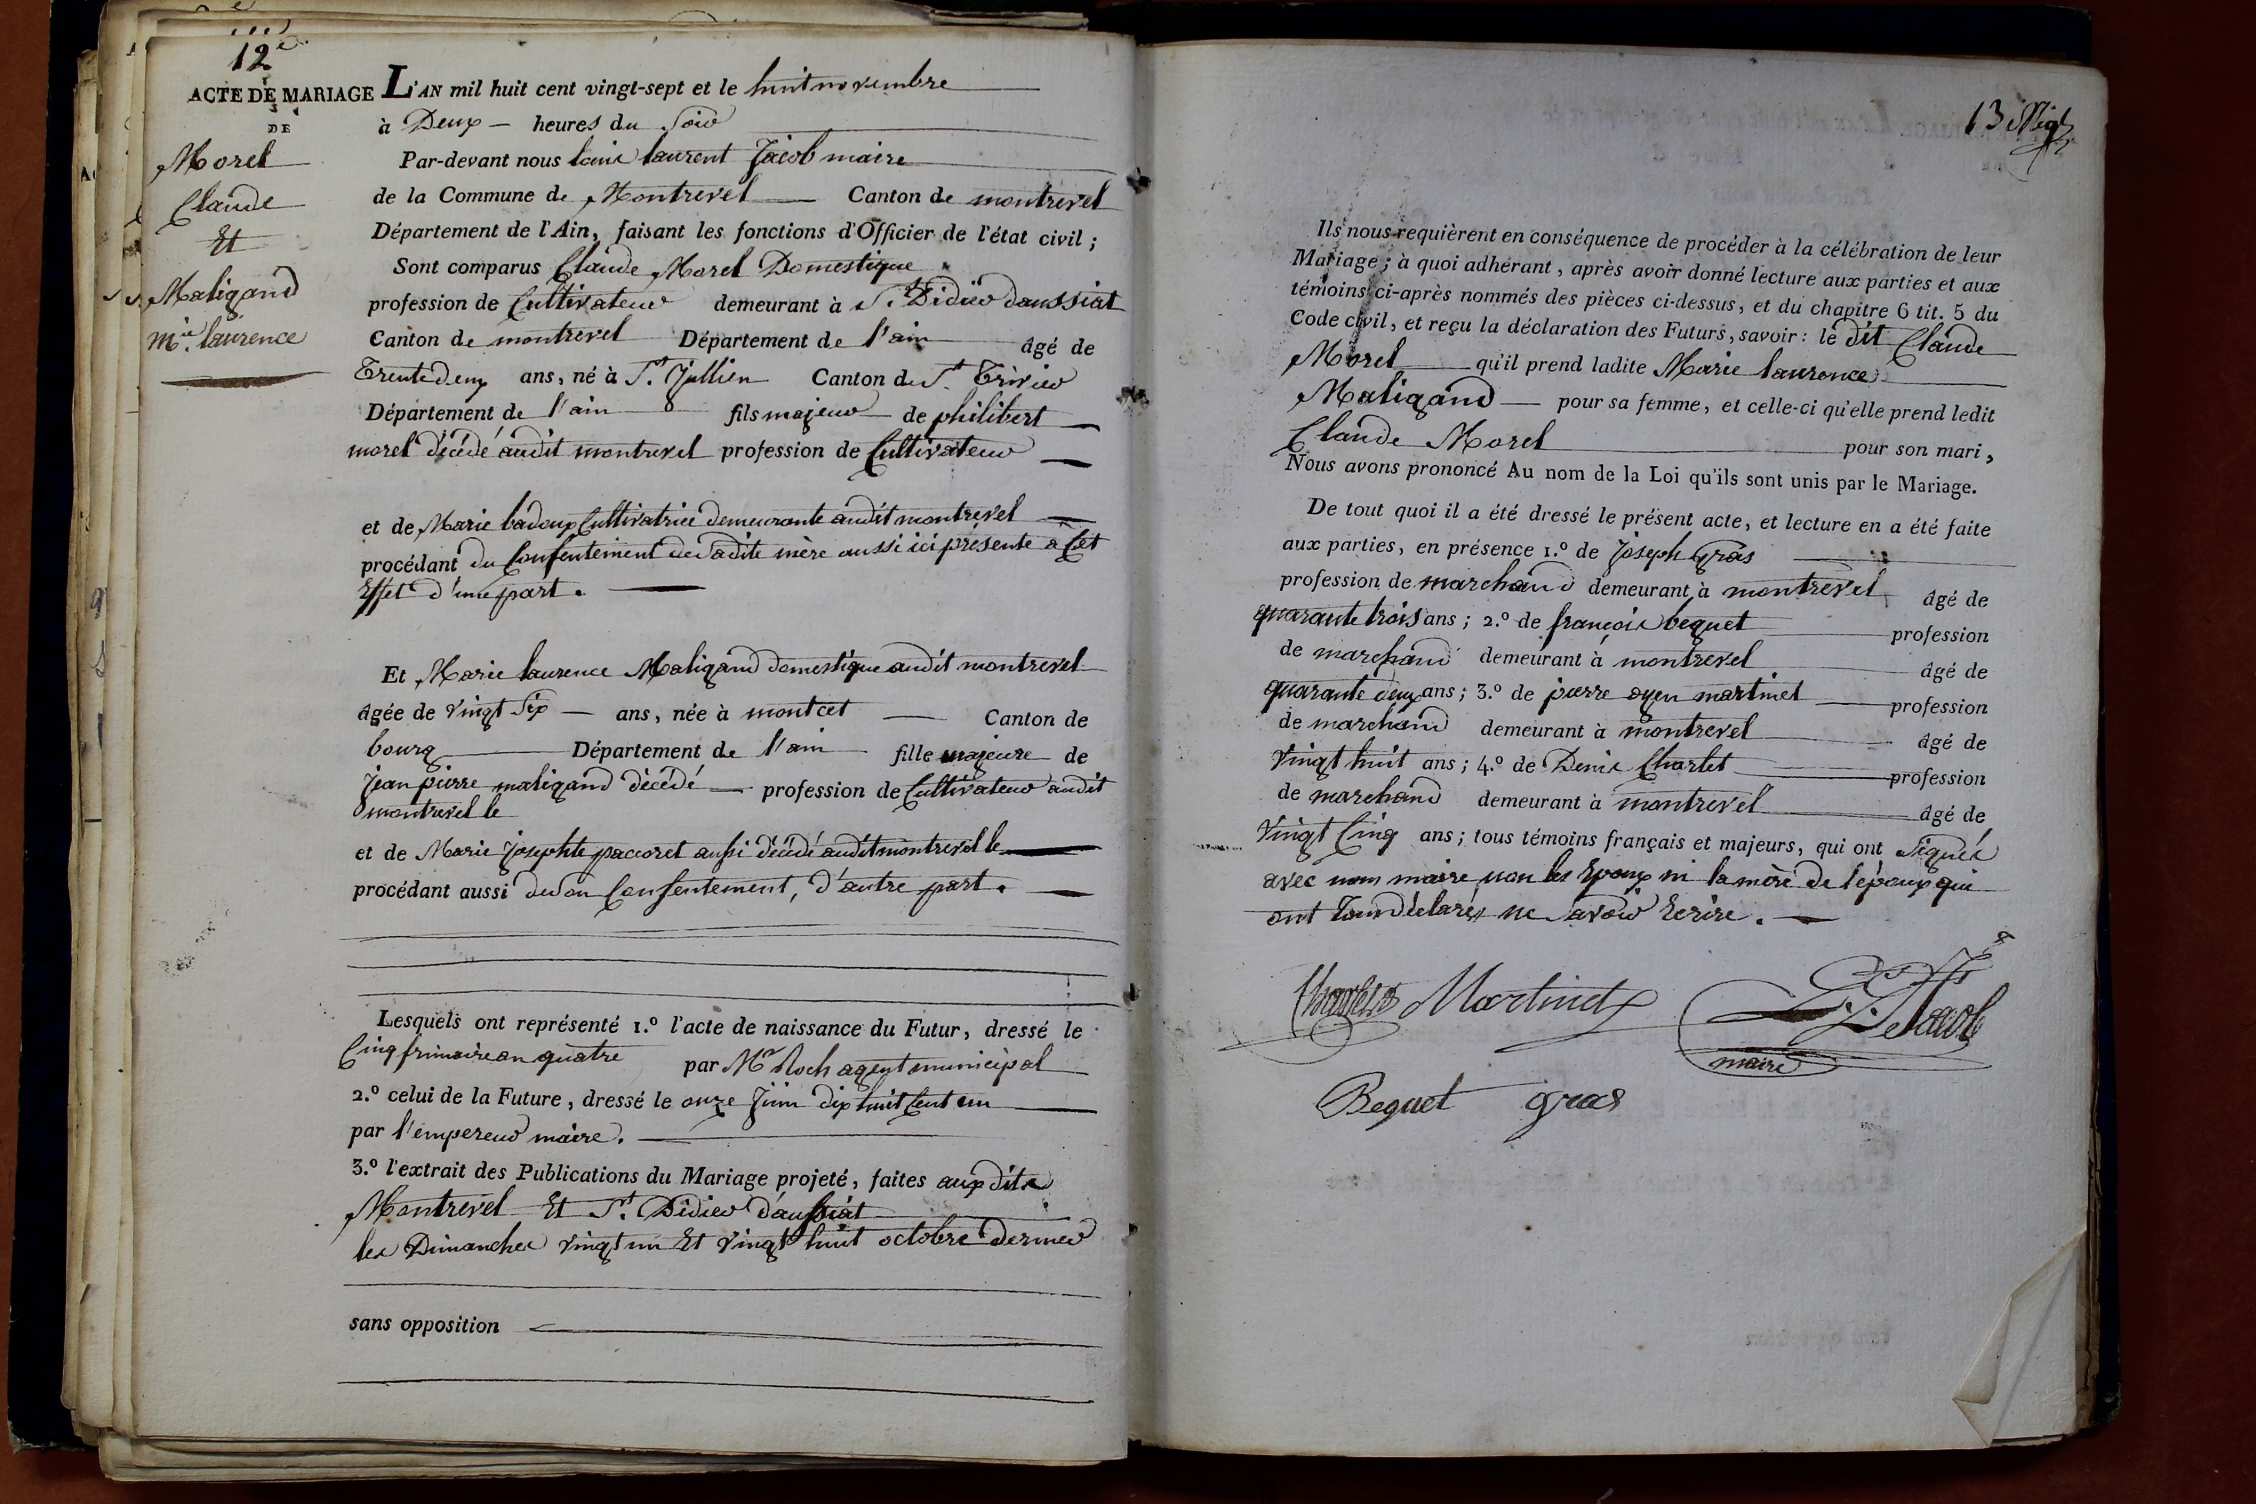 12e
ACTE DE MARIAGE
DE
Morel
Claude
Et
Maligand
Mie. laurence
L'AN mil huit cent vingt-sept et le huit novembre
à Deux heures du Soir
Par-devant nous louis laurent Jacob maire
de la Commune de Montrevel Canton de montrevel
Département de l'Ain, faisant les fonctions d'Officier de l'état civil ;
Sont comparus Claude Morel Domestique
profession de Cultivateur demeurant à St. Didier daussiat
Canton de montrevel Département de l'ain âgé de
Trente deux ans, né à St. Jullien Canton de St. Trivier
Département de l'ain fils majeur de philibert
morel décédé audit montrevel profession de Cultivateur
et de Marie badoux Cultivatrice demeurante audit montrevel
procédant du Consentement de sadite mère aussi ici présente à Cet
Effet d'une part.
Et Marie laurence Maligand domestique audit montrevel
âgée de vingt Six ans, née à montcet Canton de
bourg Département de l'ain fille majeure de
Jean pierre maligand décédé profession de Cultivateur audit
montrevel le
et de Marie Josephte paccoret aussi décédé audit montrevel le
procédant aussi de son Consentement, d'autre part.
Lesquels ont représenté 1.º l'acte de naissance du Futur, dressé le
Cinq frimaire an quatre par Mr Roch agent municipal
2.º celui de la Future, dressé le onze Juin dix huit Cent un
par l'empereur maire.
3.º l'extrait des Publications du Mariage projeté, faites aux dits
Montrevel Et St. Didier d'aussiat
les Dimanches vingt un Et vingt huit octobre dernier
sans opposition
13
Ils nous requièrent en conséquence de procéder à la célébration de leur
Mariage ; à quoi adhérant, après avoir donné lecture aux parties et aux
témoins ci-après nommés des pièces ci-dessus, et du chapitre 6 tit. 5 du
Code civil, et reçu la déclaration des Futurs, savoir : le dit Claude
Morel qu'il prend ladite Marie laurence
Maligand pour sa femme, et celle-ci qu'elle prend ledit
Claude Morel pour son mari,
Nous avons prononcé Au nom de la Loi qu'ils sont unis par le Mariage.
De tout quoi il a été dressé le présent acte, et lecture en a été faite
aux parties, en présence 1.º de Joseph Gras
profession de marchand demeurant à montrevel âgé de
quarante trois ans ; 2.º de françois bequet profession
de marchand demeurant à montrevel âgé de
quarante deux ans ; 3.º de pierre oyen martinet profession
de marchand demeurant à montrevel âgé de
vingt huit ans ; 4.º de Denis Charlet profession
de marchand demeurant à montrevel âgé de
vingt Cinq ans ; tous témoins français et majeurs, qui ont signés
avec nous maire non les Epoux ni la mère de l'époux qui
ont Tous déclarés ne savoir Ecrire.
Charlet Martinet L. L. Jacob
maire
Bequet gras